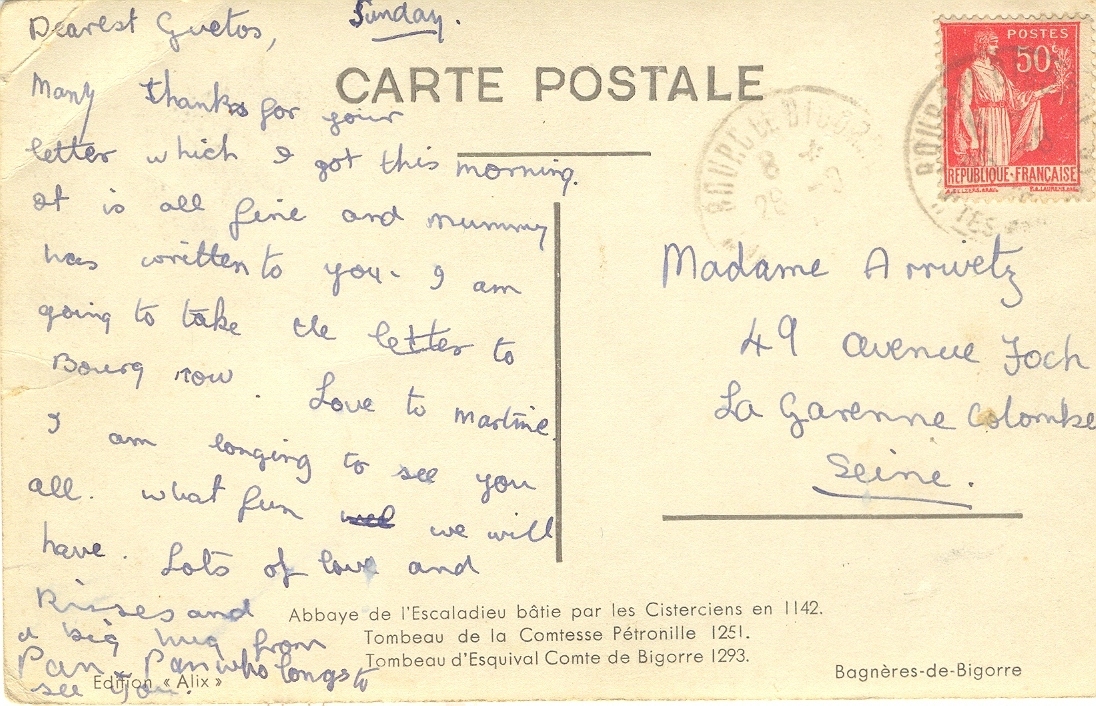 Sunday.
Dearest Guetos,
Many thanks for your
letter which I got this morning.
It is all fine and mummy
has written to you. I am
going to take the letter to
Bourg now. Love to Martine
I am longing to see you
all. what fun we will
have. Lots of love and
Kisses and
a big hug from
Pan-Pan who longs to
see you.
CARTE POSTALE
POSTES
50c
REPUBLIQUE-FRANÇAISE
Madame Arrivetz
49 avenue Foch
La Garenne Colombe
Seine.
Abbaye de l'Escaladieu bâtie par les Cisterciens en 1142.
Tombeau de la Comtesse Pétronille 1251.
Tombeau d'Esquival Comte de Bigorre 1293.
Edition « Alix »
Bagnères-de-Bigorre